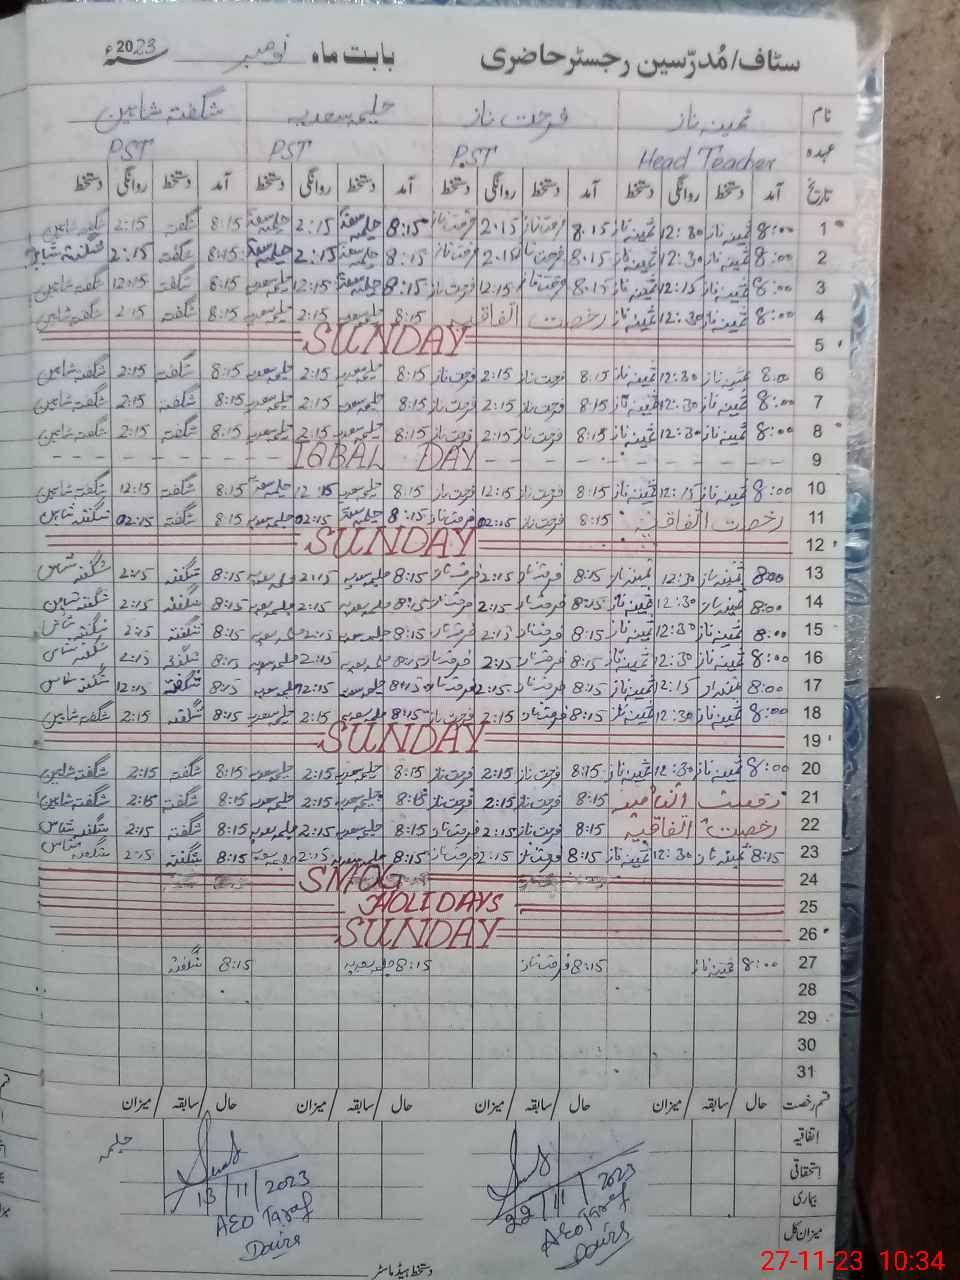 سٹاف/مُدرّسین رجسٹر حاضری بابت ماہ نومبر سنہ 2023ء
نام ثمینہ ناز فرحت ناز حلیمہ سعدیہ شگفتہ شاہین
عہدہ Head Teacher PST PST PST
تاریخ آمد دستخط روانگی دستخط آمد دستخط روانگی دستخط آمد دستخط روانگی دستخط آمد دستخط روانگی دستخط
1 8:00 ثمینہ ناز 12:30 ثمینہ ناز 8:15 فرحت ناز 2:15 فرحت ناز 8:15 حلیمہ سعدیہ 2:15 حلیمہ سعدیہ 8:15 شگفتہ 2:15 شگفتہ شاہین
2 8:00 ثمینہ ناز 12:30 ثمینہ ناز 8:15 فرحت ناز 2:15 فرحت ناز 8:15 حلیمہ سعدیہ 2:15 حلیمہ سعدیہ 8:15 شگفتہ 2:15 شگفتہ شاہین
3 8:00 ثمینہ ناز 12:15 ثمینہ ناز 8:15 فرحت ناز 12:15 فرحت ناز 8:15 حلیمہ سعدیہ 12:15 حلیمہ سعدیہ 8:15 شگفتہ 12:15 شگفتہ شاہین
4 8:00 ثمینہ ناز 12:30 ثمینہ ناز رخصت اتفاقیہ 8:15 حلیمہ سعدیہ 2:15 حلیمہ سعدیہ 8:15 شگفتہ 2:15 شگفتہ شاہین
5 SUNDAY
6 8:00 ثمینہ ناز 12:30 ثمینہ ناز 8:15 فرحت ناز 2:15 فرحت ناز 8:15 حلیمہ سعدیہ 2:15 حلیمہ سعدیہ 8:15 شگفتہ 2:15 شگفتہ شاہین
7 8:00 ثمینہ ناز 12:30 ثمینہ ناز 8:15 فرحت ناز 2:15 فرحت ناز 8:15 حلیمہ سعدیہ 2:15 حلیمہ سعدیہ 8:15 شگفتہ 2:15 شگفتہ شاہین
8 8:00 ثمینہ ناز 12:30 ثمینہ ناز 8:15 فرحت ناز 2:15 فرحت ناز 8:15 حلیمہ سعدیہ 2:15 حلیمہ سعدیہ 8:15 شگفتہ 2:15 شگفتہ شاہین
9 IQBAL DAY
10 8:00 ثمینہ ناز 12:15 ثمینہ ناز 8:15 فرحت ناز 12:15 فرحت ناز 8:15 حلیمہ سعدیہ 12:15 حلیمہ سعدیہ 8:15 شگفتہ 12:15 شگفتہ شاہین
11 رخصت اتفاقیہ 8:15 فرحت ناز 02:15 فرحت ناز 8:15 حلیمہ سعدیہ 02:15 حلیمہ سعدیہ 8:15 شگفتہ 02:15 شگفتہ شاہین
12 SUNDAY
13 8:00 ثمینہ ناز 12:30 ثمینہ ناز 8:15 فرحت ناز 2:15 فرحت ناز 8:15 حلیمہ سعدیہ 2:15 حلیمہ سعدیہ 8:15 شگفتہ 2:15 شگفتہ شاہین
14 8:00 ثمینہ ناز 12:30 ثمینہ ناز 8:15 فرحت ناز 2:15 فرحت ناز 8:15 حلیمہ سعدیہ 2:15 حلیمہ سعدیہ 8:15 شگفتہ 2:15 شگفتہ شاہین
15 8:00 ثمینہ ناز 12:30 ثمینہ ناز 8:15 فرحت ناز 2:15 فرحت ناز 8:15 حلیمہ سعدیہ 2:15 حلیمہ سعدیہ 8:15 شگفتہ 2:15 شگفتہ شاہین
16 8:00 ثمینہ ناز 12:30 ثمینہ ناز 8:15 فرحت ناز 2:15 فرحت ناز 8:15 حلیمہ سعدیہ 2:15 حلیمہ سعدیہ 8:15 شگفتہ 2:15 شگفتہ شاہین
17 8:00 ثمینہ ناز 12:15 ثمینہ ناز 8:15 فرحت ناز 12:15 فرحت ناز 8:15 حلیمہ سعدیہ 12:15 حلیمہ سعدیہ 8:15 شگفتہ 12:15 شگفتہ شاہین
18 8:00 ثمینہ ناز 12:30 ثمینہ ناز 8:15 فرحت ناز 2:15 فرحت ناز 8:15 حلیمہ سعدیہ 2:15 حلیمہ سعدیہ 8:15 شگفتہ 2:15 شگفتہ شاہین
19 SUNDAY
20 8:00 ثمینہ ناز 12:30 ثمینہ ناز 8:15 فرحت ناز 2:15 فرحت ناز 8:15 حلیمہ سعدیہ 2:15 حلیمہ سعدیہ 8:15 شگفتہ 2:15 شگفتہ شاہین
21 8:15 فرحت ناز 2:15 فرحت ناز 8:15 حلیمہ سعدیہ 2:15 حلیمہ سعدیہ 8:15 شگفتہ 2:15 شگفتہ شاہین
22 رخصت اتفاقیہ 8:15 فرحت ناز 2:15 فرحت ناز 8:15 حلیمہ سعدیہ 2:15 حلیمہ سعدیہ 8:15 شگفتہ 2:15 شگفتہ شاہین
23 8:15 ثمینہ ناز 12:30 ثمینہ ناز 8:15 فرحت ناز 2:15 فرحت ناز 8:15 حلیمہ سعدیہ 2:15 حلیمہ سعدیہ 8:15 شگفتہ 2:15 شگفتہ شاہین
24 SMOG
25 HOLIDAYS
26 SUNDAY
27 8:00 ثمینہ ناز 8:15 فرحت ناز 8:15 حلیمہ سعدیہ 8:15 شگفتہ
28
29
30
31
قسم رخصت حال / سابقہ / میزان حال / سابقہ / میزان حال / سابقہ / میزان حال / سابقہ / میزان
اتفاقیہ حلیمہ
استحقاقی
بیماری
میزان کل
22/11/2023
AEO Taraf
Daira
13/11/2023
AEO Taraf
Daira
دستخط ہیڈ ماسٹر
27-11-23 10:34